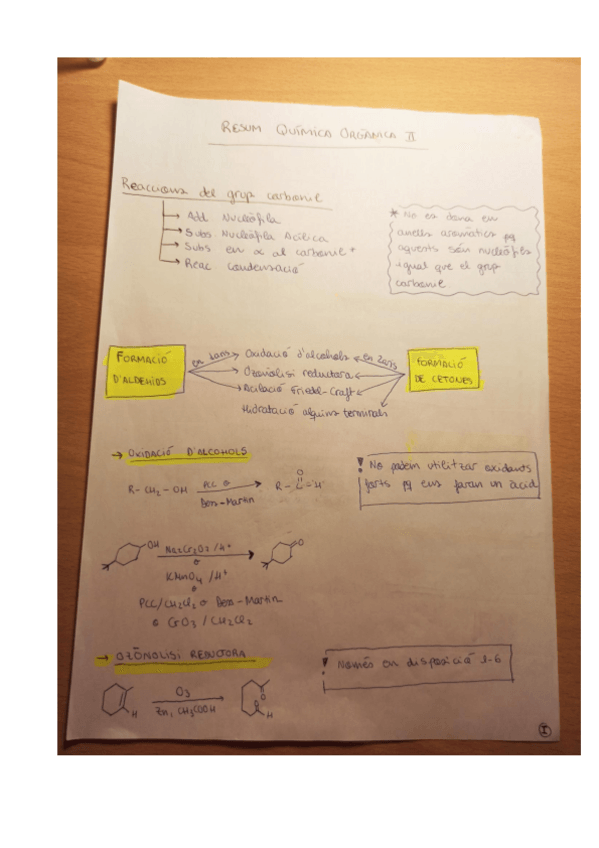 RESUM QUÍMICA ORGÀNICA II
Reaccions del grup carbonil
→ Add Nucleòfila
→ Subs Nucleòfila Acílica
→ Subs en α al carbonil *
→ Reac Condensació
* No es dona en
anells aromàtics pq
aquests són nucleòfils
igual que el grup
carbonil
FORMACIÓ
D'ALDEHIDS
en 1aris
Oxidació d'alcohols
en 2aris
Ozonòlisi reductora
Acilació Friedel-Craft
Hidratació alquins terminals
FORMACIÓ
DE CETONES
→ OXIDACIÓ D'ALCOHOLS
! No podem utilitzar oxidants
forts pq ens faran un àcid
R-CH2-OH
PCC o
Dess-Martin
R-C-H
O
OH
Na2Cr2O7/H+
o
KMnO4/H+
o
PCC/CH2Cl2 o Dess-Martin
o CrO3/CH2Cl2
O
→ OZÒNOLISI REDUCTORA
! Només en disposició 1-6
H
O3
Zn, CH3COOH
O
O
H
I